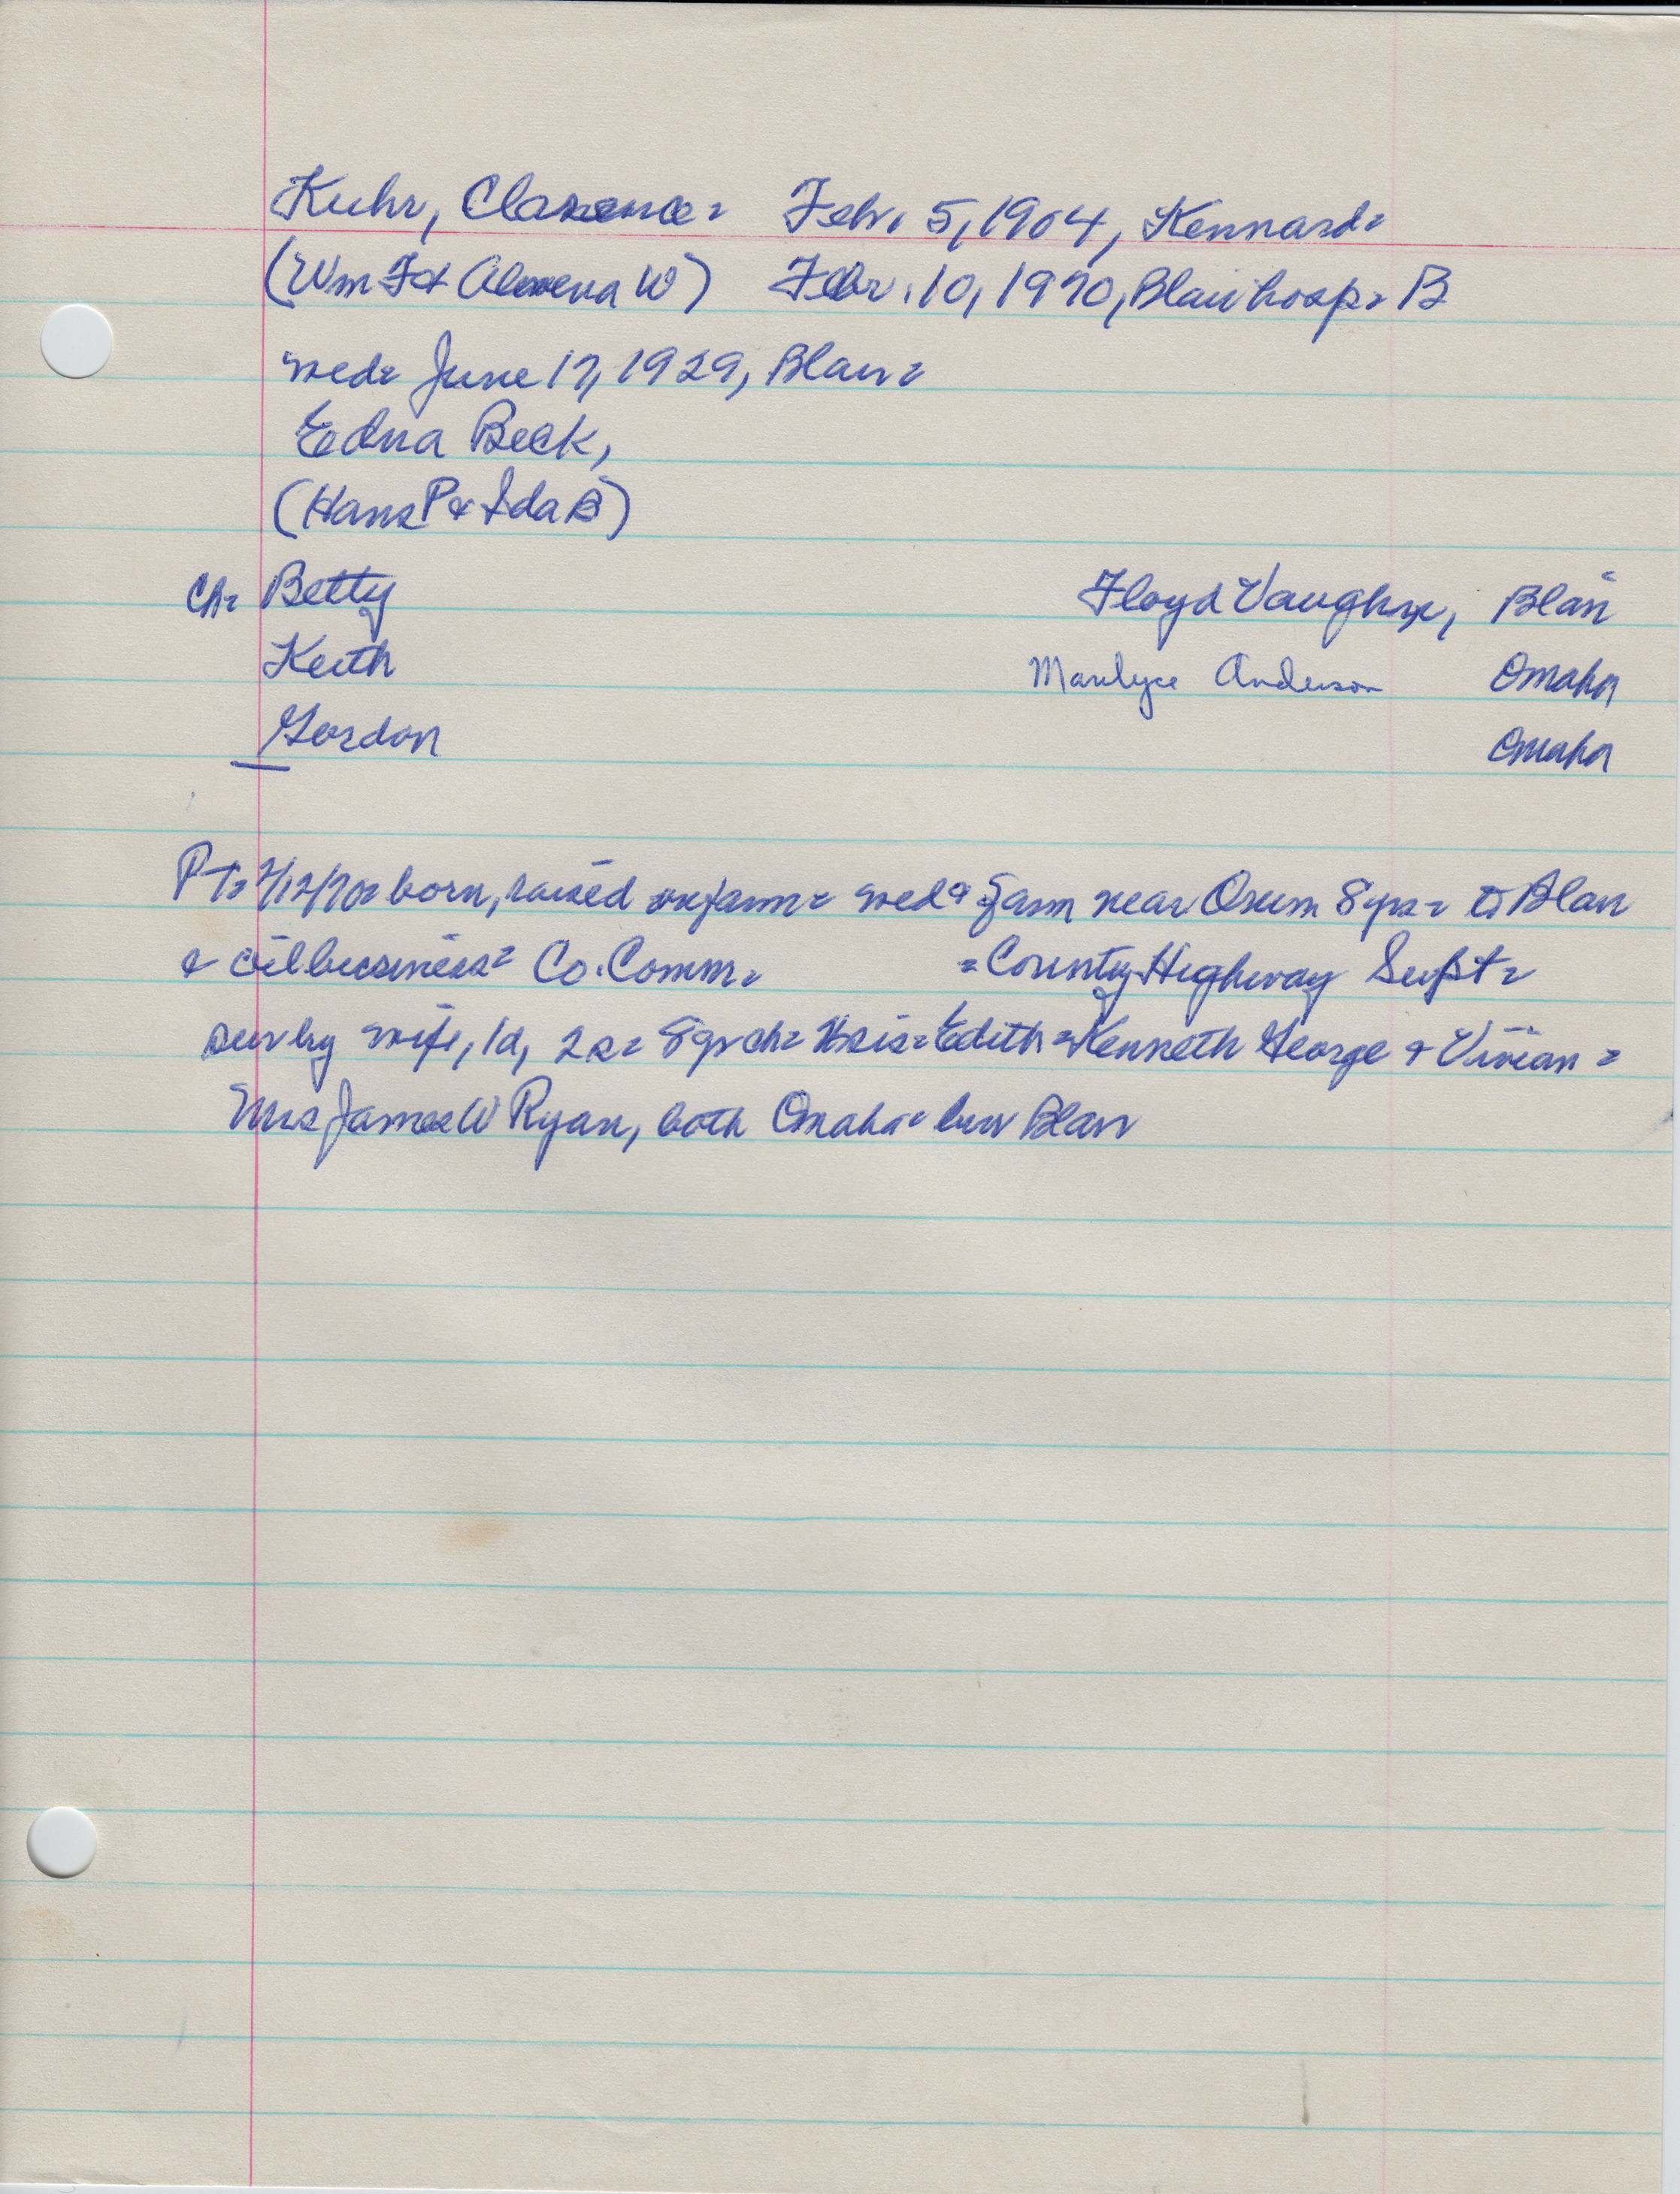 Kuhr, Clarence= Febr. 5, 1904, Kennard=
(Wm F & Alwena W) Febr. 10, 1970, Blair hosp= B
wed= June 17, 1929, Blair=
Edna Beck,
(Hans P & Ida B)
Ch= Betty Floyd Vaughn, Blair
Keith Marilyce Anderson Omaha
Gordon Omaha
PT= 2/12/70= born, raised on farm= wed & farm near Orum 8 yrs= to Blair
& oil business= Co. Comm= =County Highway Supt=
sur by wife, 1d, 2s= 8 gr ch= sis=Edith=Kenneth George & Vivian=
Mrs James W Ryan, both Omaha= bur Blair